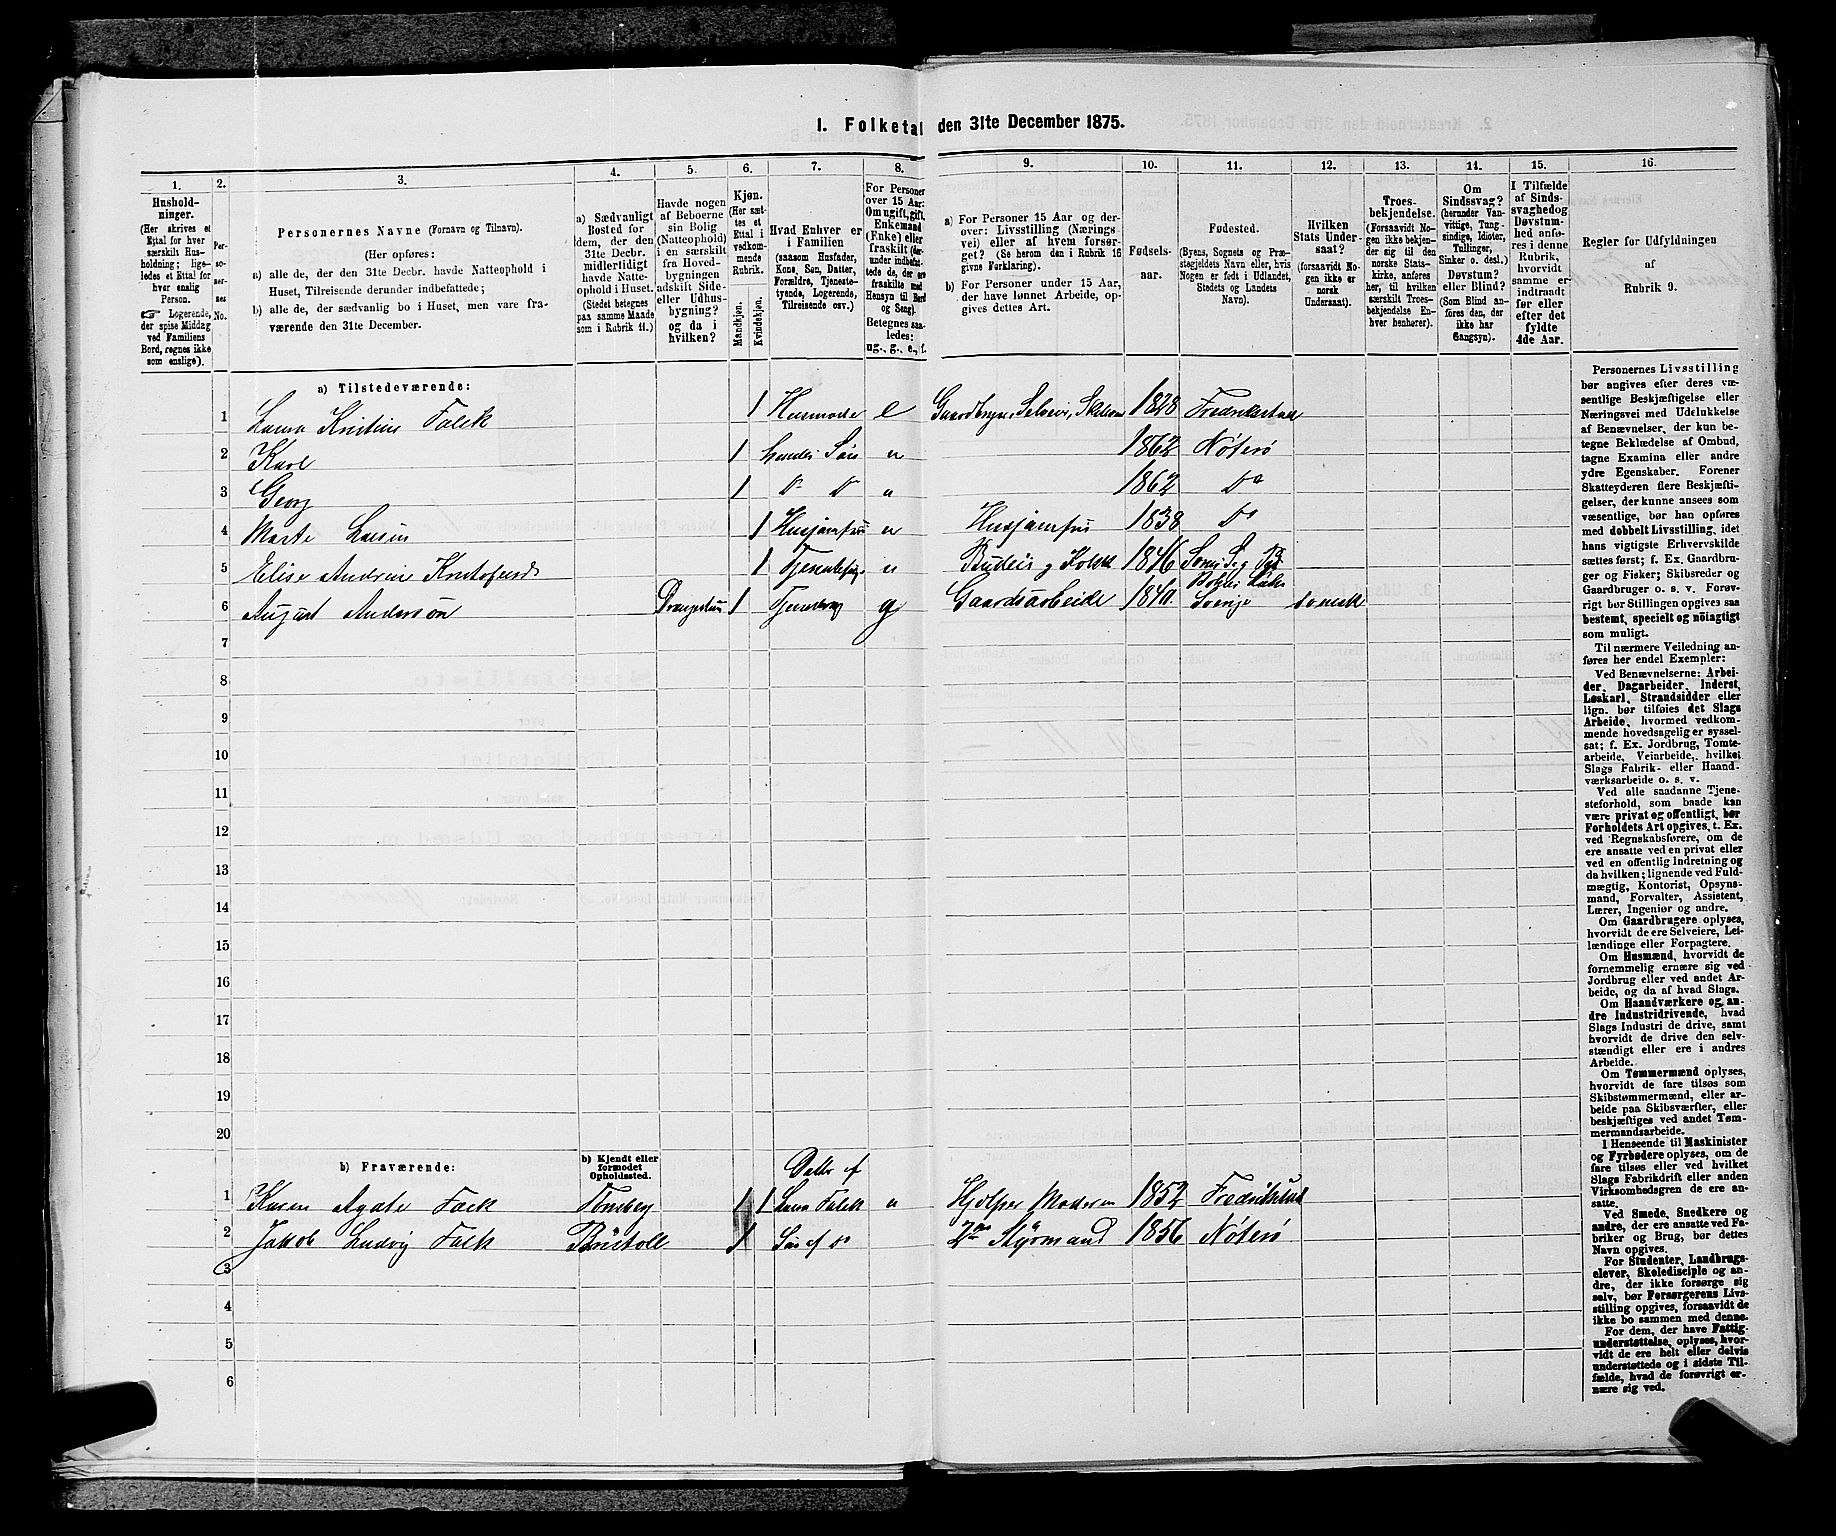 1. Folketal den 31te December 1875.
1. 2. 3. 4. 5. 6. 7. 8. 9. 10. 11. 12. 13. 14. 15. 16.
Hushold-
ninger.
(Her skrives et
Ettal for hver
særskilt Hus-
holdning; lige-
ledes et Ettal for
hver enslig
Person.
☞ Logerende,
der spise Middag
ved Familiens
Bord, regnes ikke
som enslige).
Per-
so-
ner-
nes
No.
Personernes Navne (Fornavn og Tilnavn).
(Her opføres:
a) alle de, der den 31te Decbr. havde Natteophold i
Huset, Tilreisende derunder indbefattede;
b) alle de, der sædvanlig bo i Huset, men vare fra-
værende den 31te December.
a) Sædvanligt
Bosted for
dem, der den
31te Decbr.
midlertidigt
havde Natte-
ophold i Huset.
(Stedet betegnes
paa samme Maade
som i Rubrik 11.)
Havde nogen
af Beboerne
sin Bolig
(Natteophold)
i en særskilt
fra Hoved-
bygningen
adskilt Side-
eller Udhus-
bygning?
og da i
hvilken?
Kjøn.
(Her sæt-
tes et
Ettal i
vedkom-
mende
Rubrik.
Mandkjøn.
Kvindekjøn.
Hvad Enhver er
i Familien
(saasom Husfader,
Kone, Søn, Datter,
Forældre, Tjeneste-
tyende, Logerende,
Tilreisende osv.)
For Personer
over 15 Aar:
Om ugift, gift,
Enkemand
(Enke) eller
fraskilt (der-
under indbefat-
tede de, der ere
fraskilte med
Hensyn til Bord
og Seng).
Betegnes saa-
ledes:
ug., g., e., f.
a) For Personer 15 Aar og der-
over: Livsstilling (Nærings-
vei) eller af hvem forsør-
get? (Se herom den i Rubrik 16
givne Forklaring).
b) For Personer under 15 Aar,
der have lønnet Arbeide, op-
gives dettes Art.
Fødsels-
aar.
Fødested.
(Byens, Sognets og Præ-
stegjeldets Navn eller, hvis
Nogen er født i Udlandet,
Stedets og Landets
Navn).
Hvilken
Stats Under-
saat?
(forsaavidt No-
gen ikke er
norsk
Undersaat).
Troes-
bekjendelse.
(Forsaavidt No-
gen ikke bekjen-
der sig til den
norske Stats-
kirke, anføres
her, til hvilken
særskilt Troes-
bekjendelse En-
hver henhører).
Om
Sindssvag?
(herunder Van-
vittige, Tung-
sindige, Idioter,
Tullinger,
Sinker o. desl.)
Døvstum?
eller Blind?
(Som Blind an-
føres den, der
ikke har
Gangsyn).
I Tilfælde
af Sinds-
svaghed og
Døvstum-
hed anfø-
res i denne
Rubrik,
hvorvidt
samme er
indtraadt
før eller
efter det
fyldte
4de Aar.
Regler for Udfyldningen
af
Rubrik 9.
a) Tilstedeværende:
1 Kristine Falck 1 Husmode e Gaardbrug 1828
2 Karl 1 hendes Søn 1862 Nøterø
3 Georg 1 Do Do 1862 Do
4 Marte 1 1838 Do
5 Elise 1 1846
6 August Anderson 1 g Gaardsarbeide Sverige svensk
7
8
9
10
11
12
13
14
15
16
17
18
19
20
b) Fraværende:
b) Kjendt eller
formodet
Opholdssted.
Datter af
1 Karen Agate Falck Tønsberg 1 1 Falck Hjælper Moderen 1852
2 Jakob Ludvig Falck Bristoll 1 Søn af Do 2den Styrmand 1856 Nøterø
3
4
5
6
Personernes Livsstilling
bør angives efter deres væ-
sentlige Beskjæftigelse eller
Næringsvei med Udelukkelse
af Benævnelser, der kun be-
tegne Beklædelse af Ombud,
tagne Examina eller andre
ydre Egenskaber. Forener
Skatteyderen flere Beskjæfti-
gelser, der kunne ansees som
væsentlige, bør han opføres
med dobbelt Livsstilling, idet
hans vigtigste Erhvervskilde
sættes først; f. Ex. Gaardbru-
ger og Fisker; Skibsreder og
Gaardbruger o. s. v. Forøv-
rigt bør Stillingen opgives saa
bestemt, specielt og nøiagtigt
som muligt.
Til nærmere Veiledning an-
føres her endel Exempler:
Ved Benævnelserne: Arbei-
der, Dagarbeider, Inderst,
Løskarl, Strandsidder eller
lign. bør tilføies det Slags
Arbeide, hvormed vedkom-
mende hovedsagelig er syssel-
sat; f. Ex. Jordbrug, Tomte-
arbeide, Veiarbeide, hvilket
Slags Fabrik- eller Haand-
værksarbeide o. s. v.
Ved alle saadanne Tjene-
steforhold, som baade kan
være privat og offentligt, bør
Forholdets Art opgives, t. Ex.
ved Regnskabsførere, om de
ere ansatte ved en privat eller
ved en offentlig Indretning og
da hvilken; lignende ved Fuld-
mægtig, Kontorist, Opsyns-
mand, Forvalter, Assistent,
Lærer, Ingeniør og andre.
Om Gaardbrugere oplyses,
hvorvidt de ere Selveiere, Lei-
lændinge eller Forpagtere.
Om Husmænd, hvorvidt de
fornemmelig ernære sig ved
Jordbrug eller ved andet Ar-
beide, og da af hvad Slags.
Om Haandværkere og an-
dre Industridrivende, hvad
Slags Industri de drive, samt
hvorvidt de drive den selv-
stændigt eller ere i andres
Arbeide.
Om Tømmermænd oplyses,
hvorvidt de fare tilsøs som
Skibstømmermænd, eller ar-
beide paa Skibsværfter, eller
beskjæftiges ved andet Tøm-
mermandsarbeide.
I Henseende til Maskinister
og Fyrbødere oplyses, om de
fare tilsøs eller ved hvilket
Slags Fabrikdrift eller anden
Virksomhedsgren de ere an-
satte.
Ved Smede, Snedkere og
andre, der ere ansatte ved Fa-
briker og Brug, bør dettes
Navn opgives.
For Studenter, Landbrugs-
elever, Skoledisciple og an-
dre, der ikke forsørge sig
selv, bør Forsørgerens Livs-
stilling opgives, forsaavidt de
ikke bo sammen med denne.
For dem, der have Fattig-
understøttelse, oplyses, hvor-
vidt de ere helt eller delvis
understøttede og i sidste Til-
fælde, hvad de forøvrigt er-
nære sig ved.